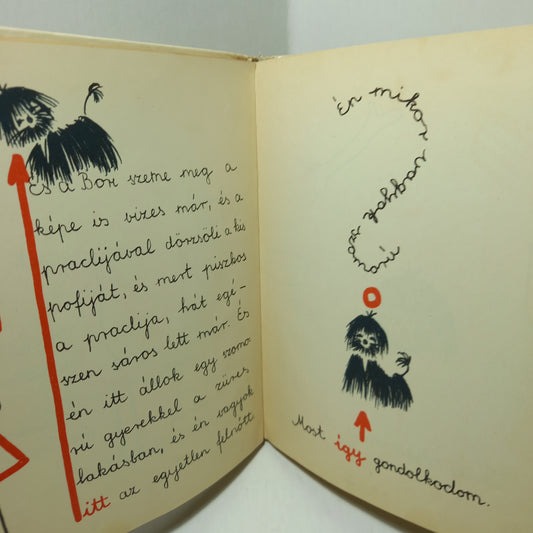 És a Bör szeme meg a
képe is vizes már, és a
praclijával dörzsöli a kis
pofiját, és mert piszkos
a praclija, hát egé-
szen sáros lett már. És
én itt állok egy szomo-
rú gyerekkel a züres
lakásban, és én vagyok
itt az egyetlen felnőtt
Én mikor vagyok szomorú
Most így gondolkodom.